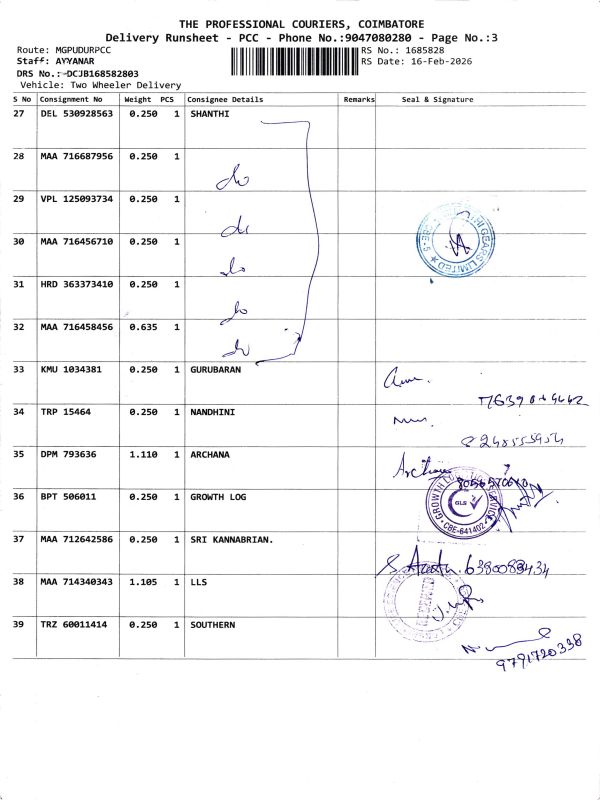 THE PROFESSIONAL COURIERS, COIMBATORE
Delivery Runsheet - PCC - Phone No.:9047080280 - Page No.:3
Route: MGPUDURPCC RS No.: 1685828
Staff: AYYANAR RS Date: 16-Feb-2026
DRS No.:-DCJB168582803
Vehicle: Two Wheeler Delivery
S No Consignment No Weight PCS Consignee Details Remarks Seal & Signature
27 DEL 530928563 0.250 1 SHANTHI
28 MAA 716687956 0.250 1 do
29 VPL 125093734 0.250 1 do
30 MAA 716456710 0.250 1 do
31 HRD 363373410 0.250 1 do
32 MAA 716458456 0.635 1 do
33 KMU 1034381 0.250 1 GURUBARAN
34 TRP 15464 0.250 1 NANDHINI
35 DPM 793636 1.110 1 ARCHANA Archana
36 BPT 506011 0.250 1 GROWTH LOG
GLS
CBE-641402
37 MAA 712642586 0.250 1 SRI KANNABRIAN.
38 MAA 714340343 1.105 1 LLS
RECEIVED
39 TRZ 60011414 0.250 1 SOUTHERN
9791720338